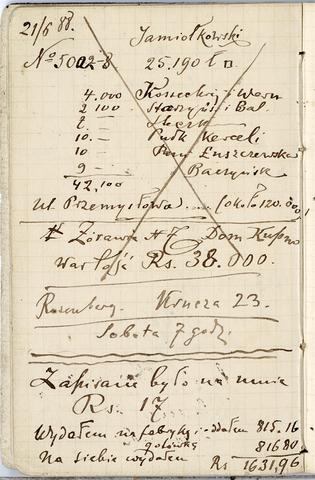 21/6 88. Jamiołkowski
No 5002-B 25.190ł□
4.000 Konecki i Wasn
2 100 Starzyński Bal.
2
10.— Pułk Kerceli
10 Pani Łuszczewska
9 — Raczyńsk
42,100
ul. Przemysłowa) .... (około 120.000)
# Żórawia # 7 Dom Kupno
Wartość Rs. 38.000.
Rosenberg. Krucza 23.
Sobota 7 godz.
Zapisane było na mnie
Rs. 17
Wydałem na fabrykę: dałem 815.16
gotówką 816 80
Na siebie wydałem Rs 1631,96